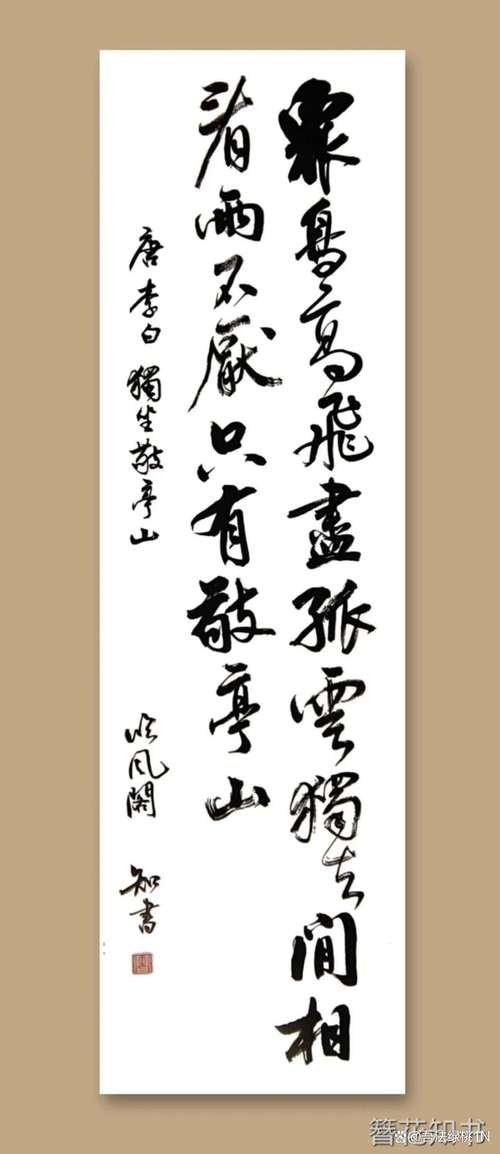 眾鳥高飛盡孤雲獨去閒相
看兩不厭只有敬亭山
唐李白獨坐敬亭山
风閣
知書
簪花知书